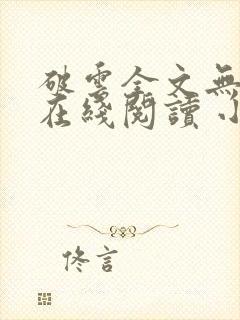 破雲全文無
在綫閱讀小
佟言